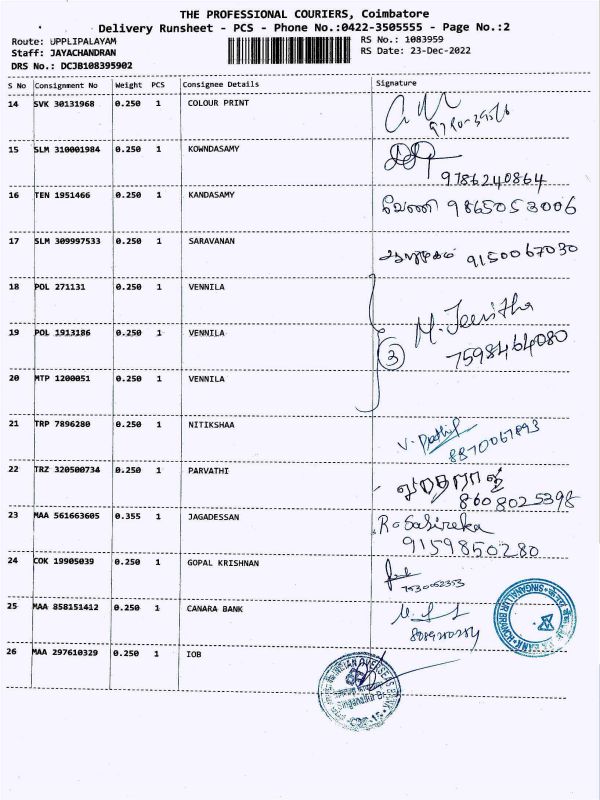 THE PROFESSIONAL COURIERS, Coimbatore
Delivery Runsheet - PCS - Phone No.:0422-3505555 - Page No.:2
Route: UPPLIPALAYAM
RS No.: 1083959
Staff: JAYACHANDRAN
RS Date: 23-Dec-2022
DRS No.: DCJB108395902
S No Consignment No Weight PCS Consignee Details Signature
14 SVK 30131968 0.250 1 COLOUR PRINT
15 SLM 310001984 0.250 1 KOWNDASAMY
9786240864
16 TEN 1951466 0.250 1 KANDASAMY வேணி 9865053006
17 SLM 309997533 0.250 1 SARAVANAN 9150067030
18 POL 271131 0.250 1 VENNILA
M. Jeevitha
19 POL 1913186 0.250 1 VENNILA
3 7598464080
20 MTP 1200051 0.250 1 VENNILA
21 TRP 7896280 0.250 1 NITIKSHAA
8870067893
22 TRZ 320500734 0.250 1 PARVATHI
8608025398
23 MAA 561663605 0.355 1 JAGADESSAN R. Sasireka
9159850280
24 COK 19905039 0.250 1 GOPAL KRISHNAN
25 MAA 858151412 0.250 1 CANARA BANK
26 MAA 297610329 0.250 1 IOB
INDIAN OVERSEAS BANK